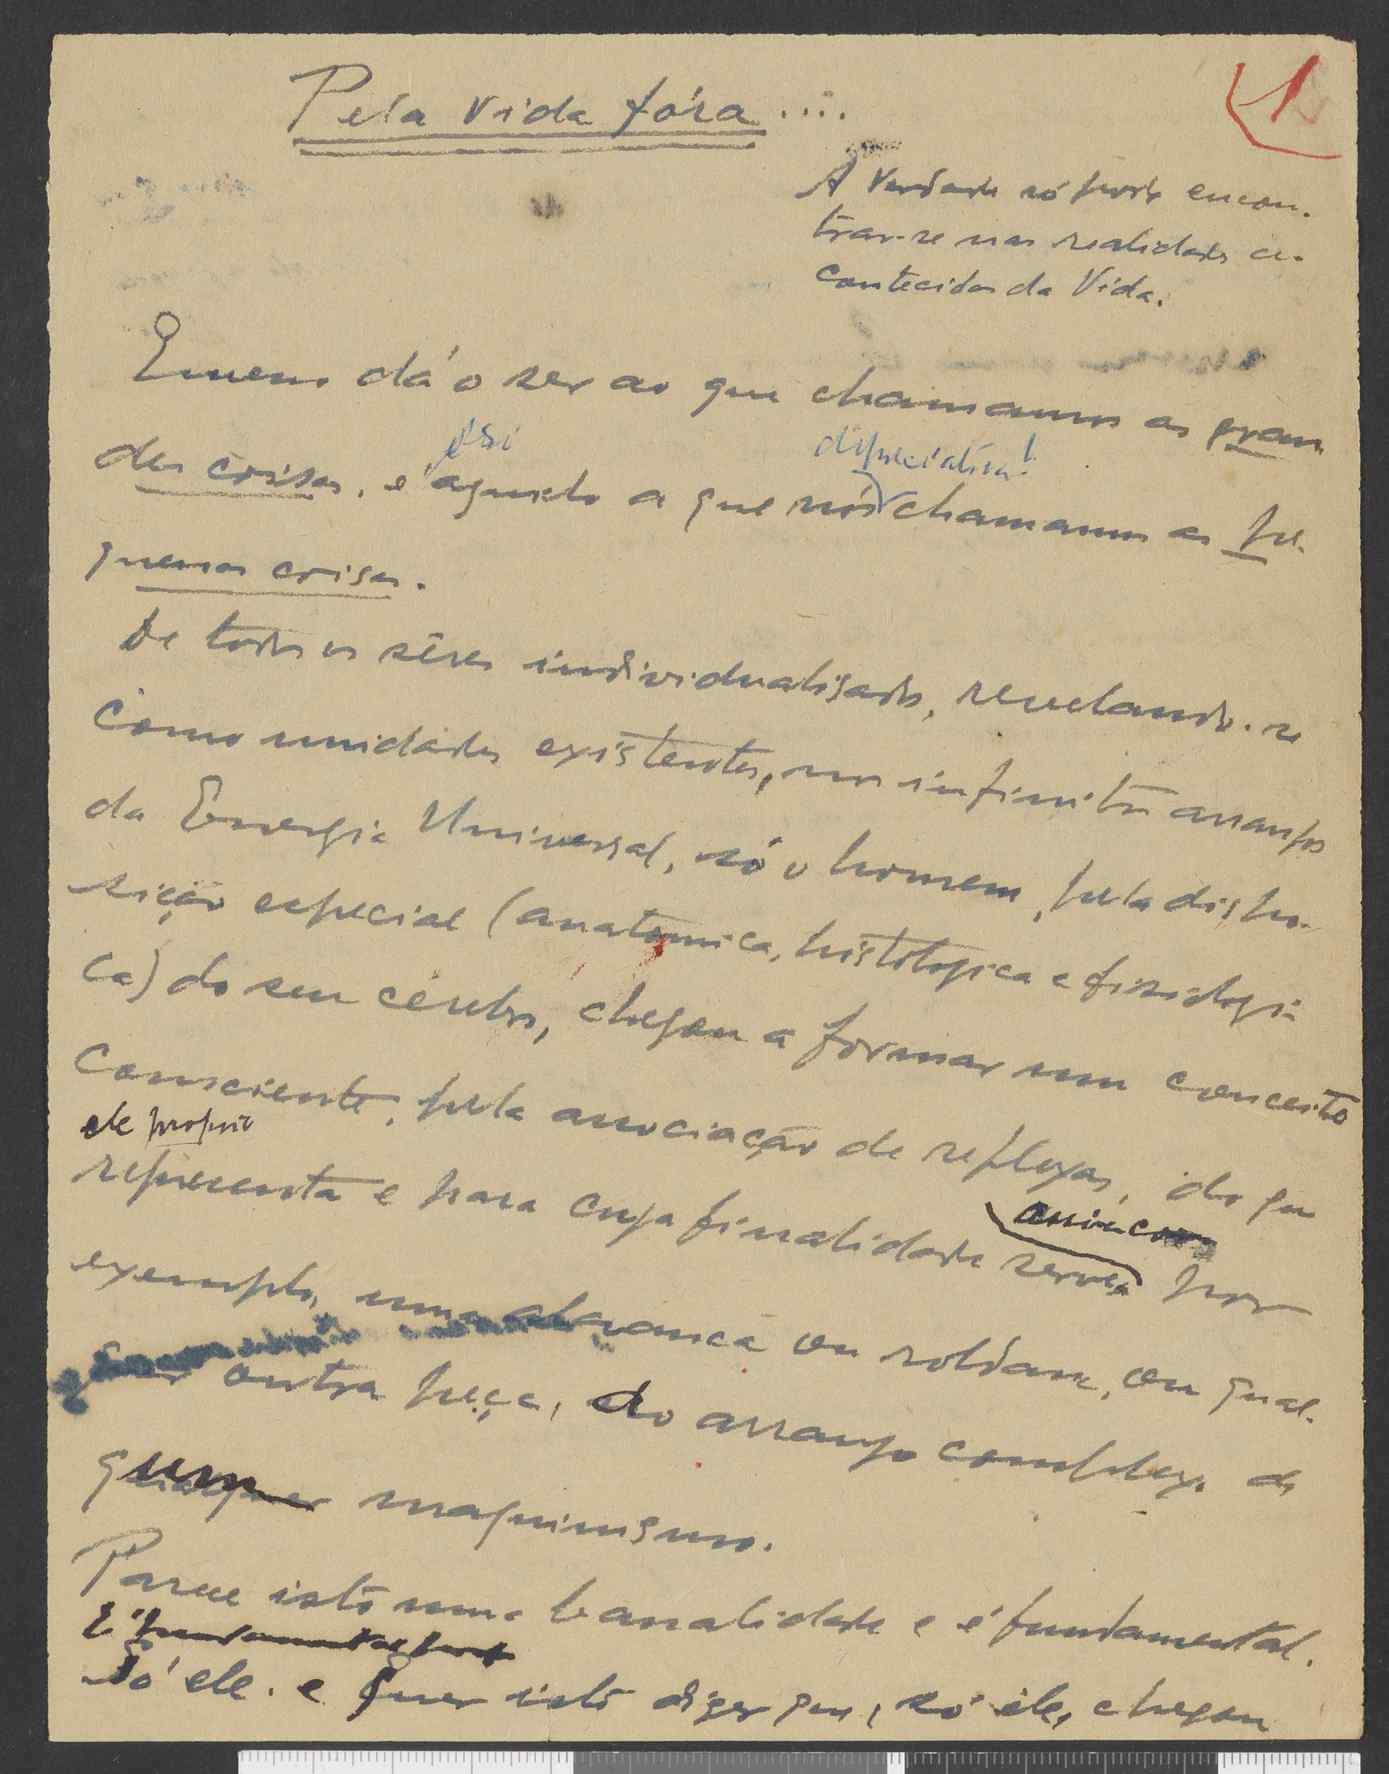 Pela vida fóra....
1
A Verdade só pode encon-
trar-se nas realidades a-
contecidas da Vida.
Quem dá o ser ao que chamamos as gran
des coisas, é aquelo a que nós chamamos as pe-
depreciativa!
quenas coisas.
De todos os sêres individualisados, revelando-se
como unidades existentes, nos infinitos arranjos
da Energia Universal, só o homem, pela dispo-
sição especial (anatomica, histologica e fisiologi
ca) do seu cérebro, chegou a formar um conceito
consciente, pela associação de reflexos, do que
ele proprio
representa e para cuja finalidade serve, por
assim como
exemplo, uma alavanca ou roldana, ou qual-
quer outra peça, do arranjo complexo de
qualquer maquinismo.
Parece isto uma banalidade e é fundamental.
É fundamental
Só ele. e quer isto dizer que, só êle, chegou